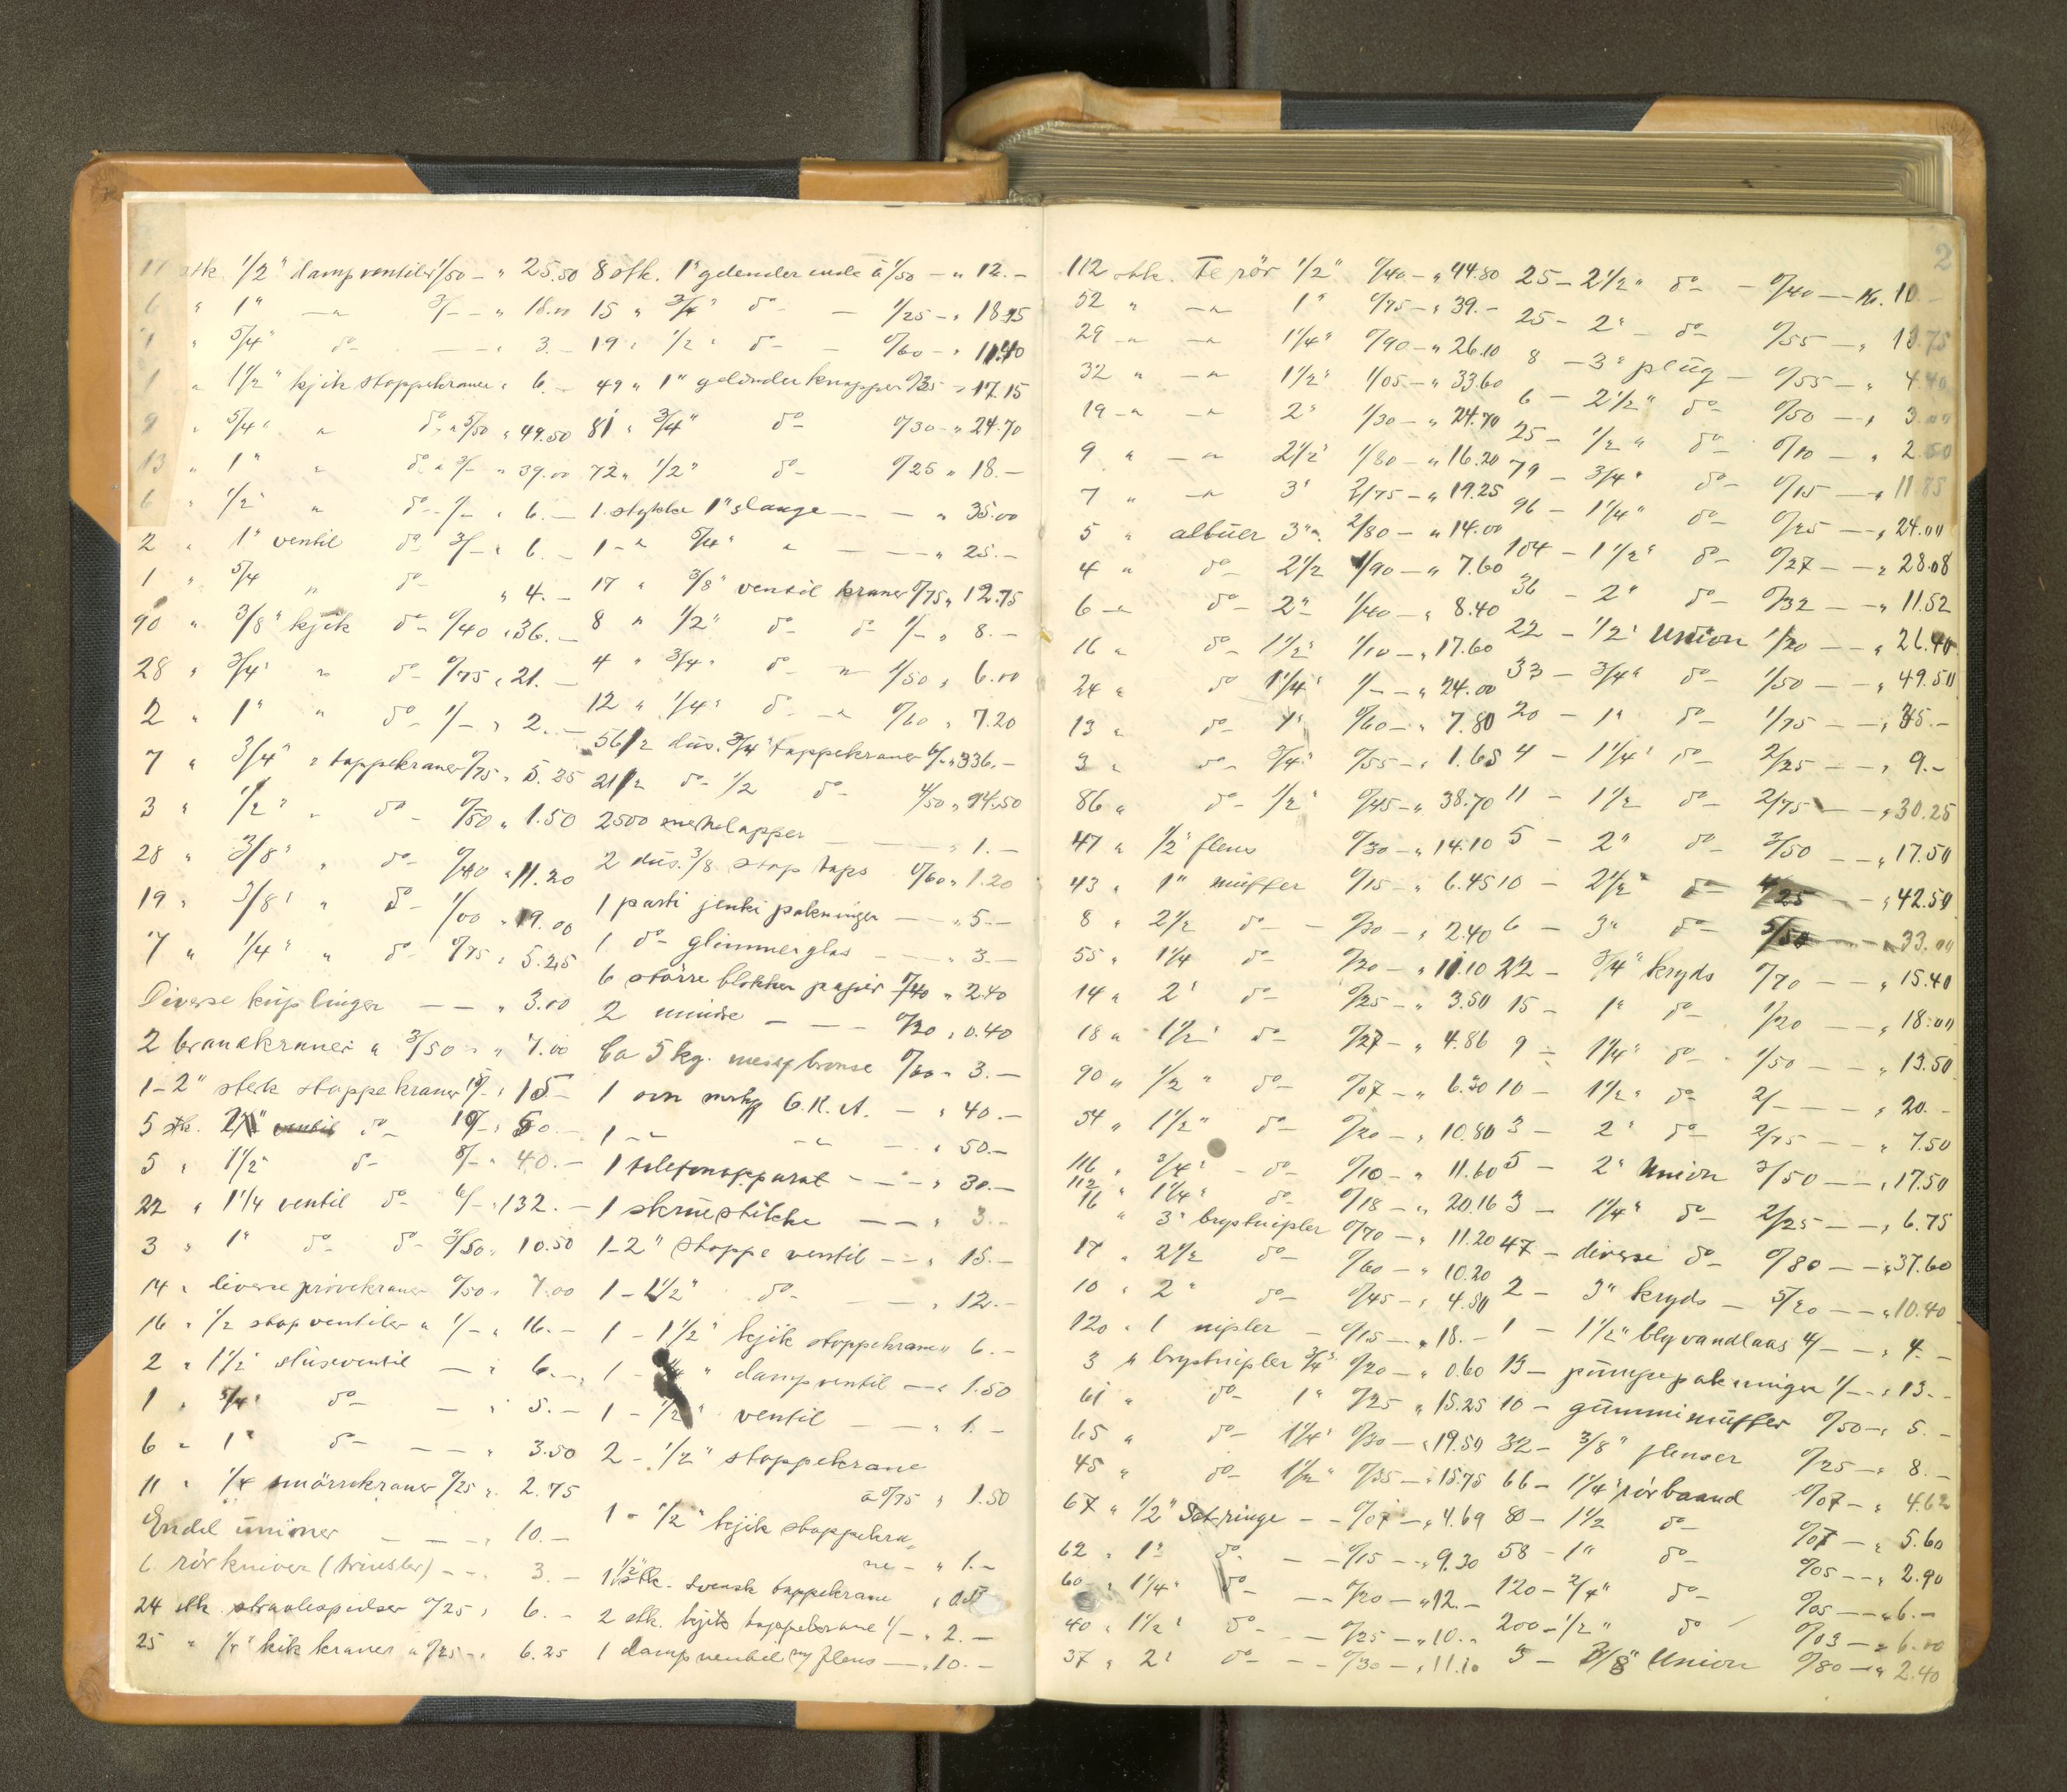 17 stk. 1/2" dampventiler 1/50 — " 25.50
6 " 1" — " 3/— — " 18.00
1 " 5/4" do — — " 3.—
1 " 1 1/2" kjik stoppekraner " 6.—
9 " 5/4" " do " 5/50 " 49.50
13 " 1" " do " 3/— " 39.00
6 " 1/2" " do 1/— " 6.—
2 " 1" ventil do 3/— " 6.—
1 " 5/4 " do " 4.—
90 " 3/8" kjik do 0/40 " 36.—
28 " 3/4" " do 0/75 " 21.—
2 " 1" " do 1/— " 2.—
7 " 3/4" " tappekraner 0/75 " 5.25
3 " 1/2" " do 0/50 " 1.50
28 " 3/8" " do 0/40 " 11.20
19 " 3/8" " do 1/00 " 19.00
7 " 1/4" " do 0/75 " 5.25
Diverse kuplinger — — " 3.00
2 brandkraner a 3/50 — " 7.00
1 – 2" stek stoppekraner 15/— " 15—
5 stk. 2" do 10/— " 50.—
5 " 1 1/2" do 8/— " 40.—
22 " 1 1/4 ventil do 6/— " 132.—
3 " 1" do do 3/50 " 10.50
14 " diverse prøvekraner 0/50 " 7.00
16 " 1/2 stopventiler a 1/— " 16.—
2 " 1 1/2" slüseventil — " 6.—
1 " 5/4" do — " 5.—
6 " 1" do — — " 3.50
11 " 1/4 smörrekraner 0/25 " 2.75
Endel ünioner — — " 10.—
6 rörkniver (trinsler) — — " 3.—
24 stk. straalespidser 0/25 " 6.—
25 " 1/4" kik kraner a 0/25 — " 6.25
8 stk. 1" gelender ende à 1/50 — " 12.—
15 " 3/4" do — 1/25 — " 18.75
19 " 1/2" do — 0/60 — " 11.40
49 " 1" gelinder knapper 0/35 — " 17.15
81 " 3/4" do 0/30 — " 24.70
72 " 1/2" do 0/25 " 18.—
1 stykke 1" slange — — " 35.00
1 — " 5/4" " — — — " 25.—
17 " 3/8" ventil kraner 0/75 " 12.75
8 " 1/2" do do 1/— " 8.—
4 " 3/4" do — " 1/50 " 6.00
12 " 1/4" do — " 0/60 " 7.20
56 1/2 düs. 3/4" tappekraner 6/— " 336.—
21 1/2 do 1/2 do 4/50 " 94.50
2500 merkelapper — — — " 1.—
2 düs. 3/8 stop taps 0/60 " 1.20
1 parti jenki pakninger — — " 5.—
1 do glimmerglas — — " 3.—
6 större blokker papir 0/40 " 2.40
2 mindre — — — 0/20 " 0.40
Ca 5 kg. bronse 0/60 " 3.—
1 ovn G.K.A. — " 40.—
1 — " — " — " 50.—
1 telefonapparat — — — " 30.—
1 skruestikke — — " 3.—
1 – 2" stoppe ventil — — " 15.—
1 – 1 1/2" do — — " 12.—
1 – 1 1/2" kjik stoppekrane " 6.—
1 – " dampventil — " 1.50
1 – 1/2" ventil — " 1.—
2 – 1/2" stoppekrane
à 0/75 " 1.50
1 – 1/2" kjik stoppekra„
ne — " 1.—
1 1/2" stk. svensk tappekrane "
2 stk. kjik tappekrane 1/— " 2.—
1 dampventil m/ flens — " 10.—
2
112 stk. Te rör 1/2" 0/40 — " 44.80
52 " — " 1" 0/75 — " 39.—
29 — " — " 1 1/4" 0/90 — " 26.10
32 " — " 1 1/2" 1/05 — " 33.60
19 — " — " 2" 1/30 — " 24.70
9 " — " 2 1/2" 1/80 — " 16.20
7 " — " 3" 2/75 — " 19.25
5 " albüer 3" 2/80 — " 14.00
4 " do 2 1/2 1/90 — " 7.60
6 — " do 2" 1/40 — " 8.40
16 " do 1 1/2" 1/10 — " 17.60
24 " do 1 1/4" 1/— — " 24.00
13 " do 1" 0/60 — " 7.80
3 " do 3/4" 0/55 — " 1.65
86 " do 1/2" 0/45 — " 38.70
47 " 1/2" flens 0/30 — " 14.10
43 " 1" müffer 0/15 — " 6.45
8 " 2 1/2 do — 0/30 — " 2.40
55 " 1 1/4 do 0/20 — " 11.10
14 " 2" do 0/25 — " 3.50
18 " 1 1/2" do 0/27 — " 4.86
90 " 1/2" do 0/07 — " 6.30
54 " 1 1/2" do 0/20 — " 10.80
116 " 3/4" — do 0/10 — " 11.60
112 " 1 1/4" do 0/18 — " 20.16
16 " 3" brystnipler 0/70 — " 11.20
17 " 2 1/2 do 0/60 — " 10.20
10 " 2" do 0/45 — " 4.50
120 " 1 nipler — 0/15 — " 18.—
3 " brystnipler 3/4" 0/20 — " 0.60
61 " do 1" 0/25 " 15.25
65 " do 1 1/4" 0/30 — " 19.50
45 " do 1 1/2" 0/35 — " 15.75
67 " 1/2" Satringe — — 0/07 — " 4.69
62 " 1" do — — 0/15 — " 9.30
60 " 1 1/4" do — — 0/20 — " 12.—
40 " 1 1/2" do — — 0/25 — " 10.—
37 " 2" do — — 0/30 — " 11.10
25 — 2 1/2" do — 0/40 — Kr. 10.—
25 – 2" — do 0/55 — " 13.75
8 — 3" plüg — 0/55 — " 4.40
6 — 2 1/2" do 0/50 — " 3.00
25 — 1/2" do 0/10 — " 2.50
79 — 3/4" do 0/15 — " 11.85
96 — 1 1/4" do 0/25 — " 24.00
104 — 1 1/2" do 0/27 — — " 28.08
36 — 2" do 0/32 — — " 11.52
22 — 1/2" Union 1/20 — — " 26.40
33 — 3/4" do 1/50 — — " 49.50
20 — 1" do 1/75 — — " 35.—
4 — 1 1/4" do 2/25 — — " 9.—
11 — 1 1/2 do 2/75 — " 30.25
5 — 2" do 3/50 — — " 17.50
10 — 2 1/2" do 4/25 — " 42.50
6 — 3" do 5/50 — " 33.00
22 — 3/4" kryds 0/70 — — " 15.40
15 — 1" do 1/20 — — " 18.00
9 — 1 1/4" do 1/50 — — " 13.50
10 — 1 1/2" do 2/— — — " 20.—
3 — 2" do 2/75 — — " 7.50
5 — 2" Union 3/50 — — " 17.50
3 — 1 1/4" do 2/25 — — " 6.75
47 — diverse do 0/80 — — " 37.60
2 — 3" kryds — 5/20 — — " 10.40
1 — 1 1/2" bly vandlaas 4/— — " 4.—
13 — pümpepakninger 1/— — " 13.—
10 — gümmimüffer 0/50 — " 5.—
32 — 3/8" flenser 0/25 — " 8.—
66 — 1 1/4" rörbaand 0/07 — " 4.62
80 — 1 1/2 do 0/07 — " 5.60
58 — 1" do 0/05 — — " 2.90
120 — 3/4" do 0/05 — — " 6.—
200 — 1/2" do 0/03 — " 6.00
3 — 3/8" Union 0/80 — " 2.40